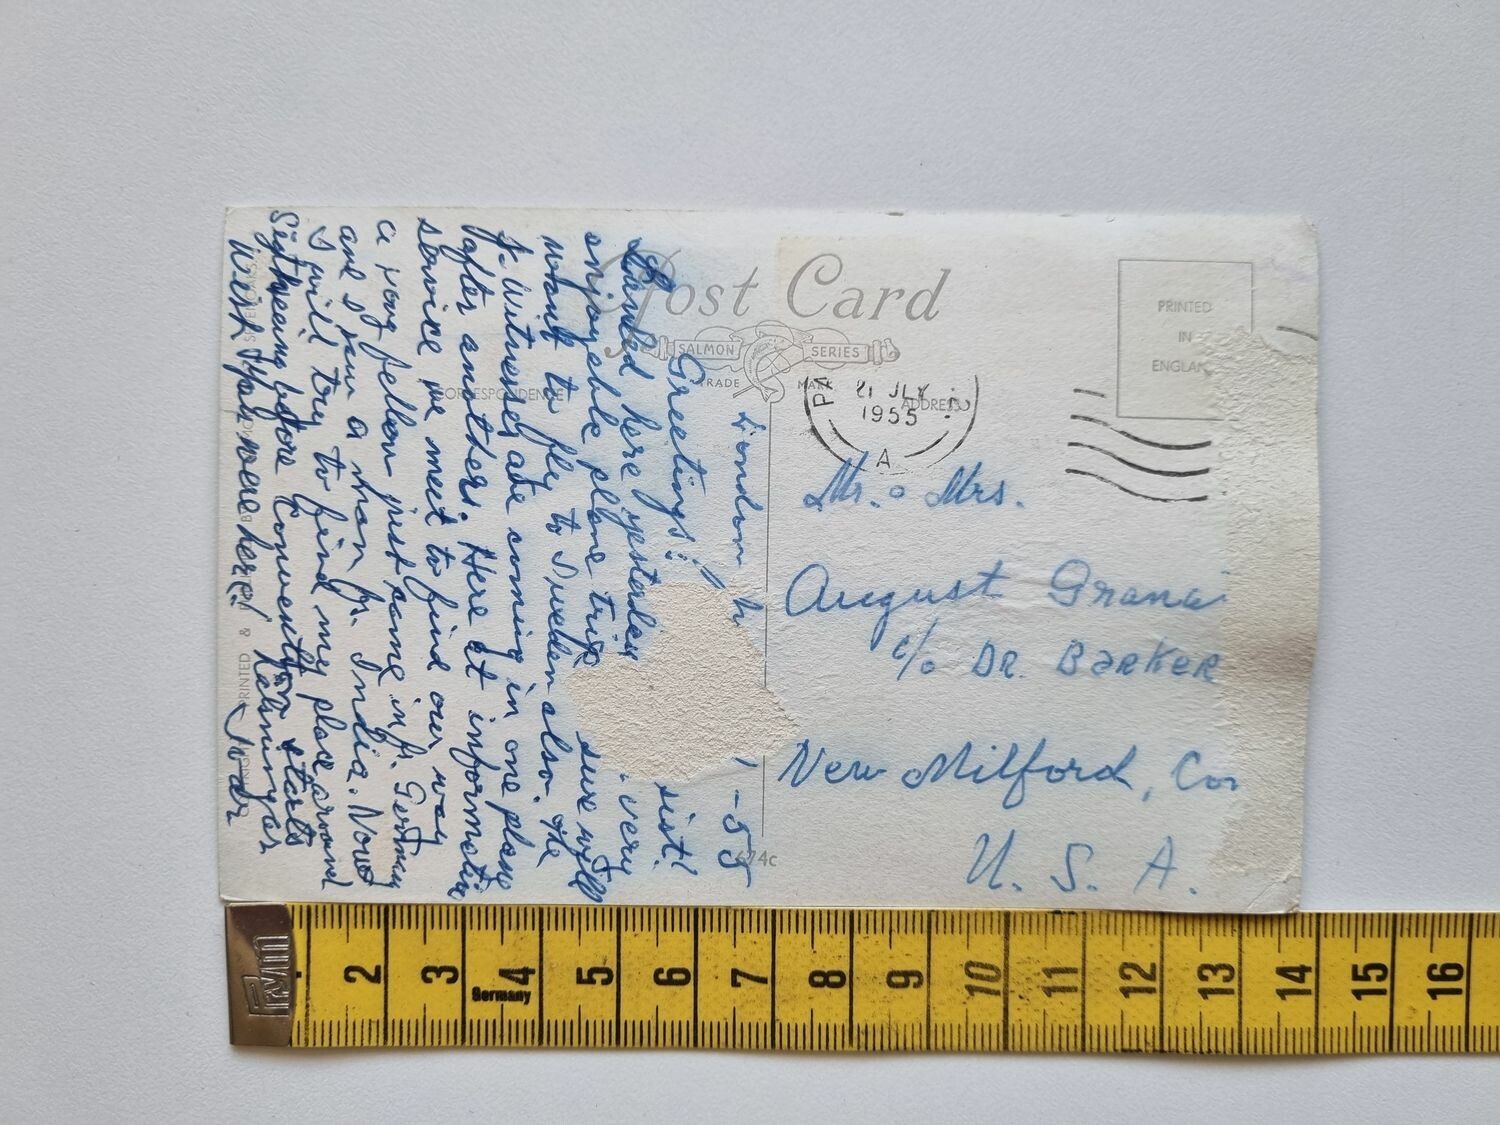 Post Card
SALMON SERIES
TRADE MARK
CORRESPONDENCE
ADDRESS
PRINTED
IN
ENGLAN
21 JLY
1955
A
London
-55
Greetings!
sist!
Landed here yesterday very
enjoyable plane trip sure will
want to fly to Sweden also. The
J. Witnesses are coming in one plane
after anothers. Here at informatin
service we meet to find our way
a young fellow just came in fr. Germany
and I saw a man fr. India. Now
I will try to find my place around
Sigtseeing before Convention starts
Wish You were here!
Mr. o Mrs.
August
c/o DR. BARKER
New Milford, Con
U. S. A.
674c
PRINTED &
2 3 4 5 6 7 8 9 10 11 12 13 14 15 16
Germany